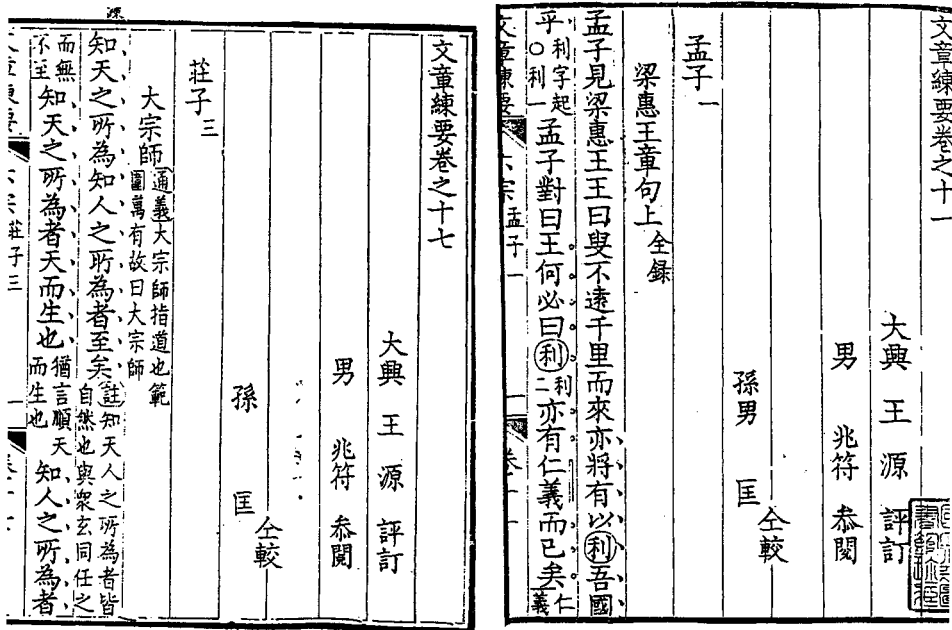 文章練要卷之十一
大興 王 源 評訂
男 兆符 叅閱
仝較
孫男 匡
孟子一
梁惠王章句上全錄
孟子見梁惠王王曰叟不遠千里而來亦將有以利吾國
乎利字起○利一孟子對曰王何必曰利利二亦有仁義而已矣仁義
六宗 孟子一 一
文章練要卷之十七
大興 王 源 評訂
男 兆符 叅閱
仝較
孫 匡
莊子三
大宗師通義大宗師指道也範圍萬有故曰大宗師
知天之所為知人之所為者至矣註知天人之所為者皆自然也與衆玄同任之
而無不至知天之所為者天而生也猶言順天而生也知人之所為者
六宗 莊子三 一